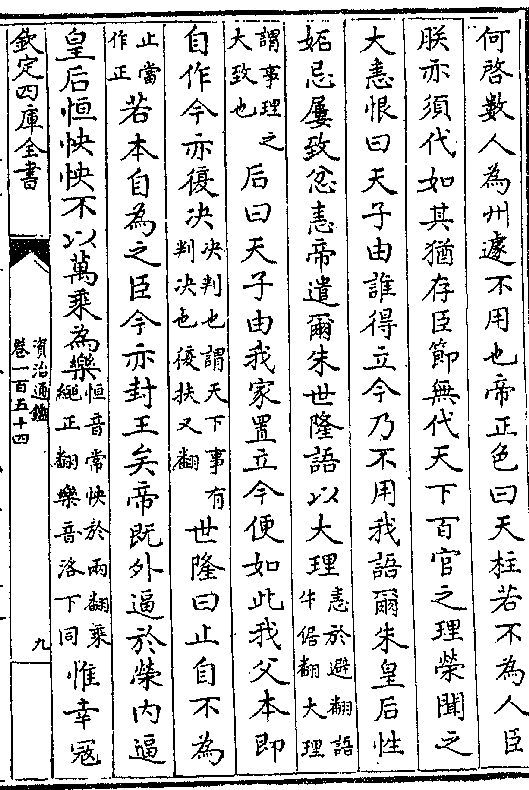 何啓數人為州遽不用也帝正色曰天柱若不為人臣
朕亦須代如其猶存臣節無代天下百官之理榮聞之
大恚恨曰天子由誰得立今乃不用我語爾朱皇后性
妬忌屢致忿恚帝遣爾朱世隆語以大理恚於避翻語牛倨翻大理
謂事理之大致也后曰天子由我家置立今便如此我父本即
自作今亦復决决判也謂天下事有判决也復扶又翻世隆曰止自不為
止當作正若本自為之臣今亦封王矣帝既外逼於榮内逼
皇后恒怏怏不以萬乘為樂恒音常怏於兩翻乘繩正翻樂音洛下同惟幸寇
欽定四庫全書
資治通鑑
卷一百五十四
九